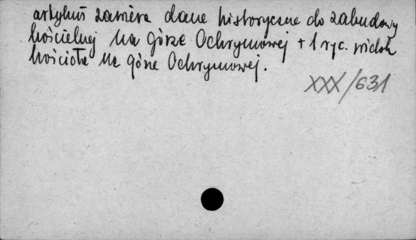 artykuł zawiera dane historyczne do zabudowy
kościelnej na górze Ochrymowej + 1 ryc. widok
kościoła na górze Ochrymowej.
XXX/631